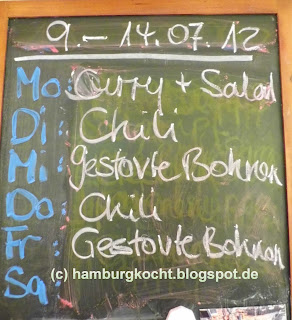 9. - 14.07.12
Mo: Curry + Salad
Di: Chili
Mi: gestovte Bohnen
Do: Chili
Fr: Gestovte Bohnen
Sa:
(c) hamburgkocht.blogspot.de